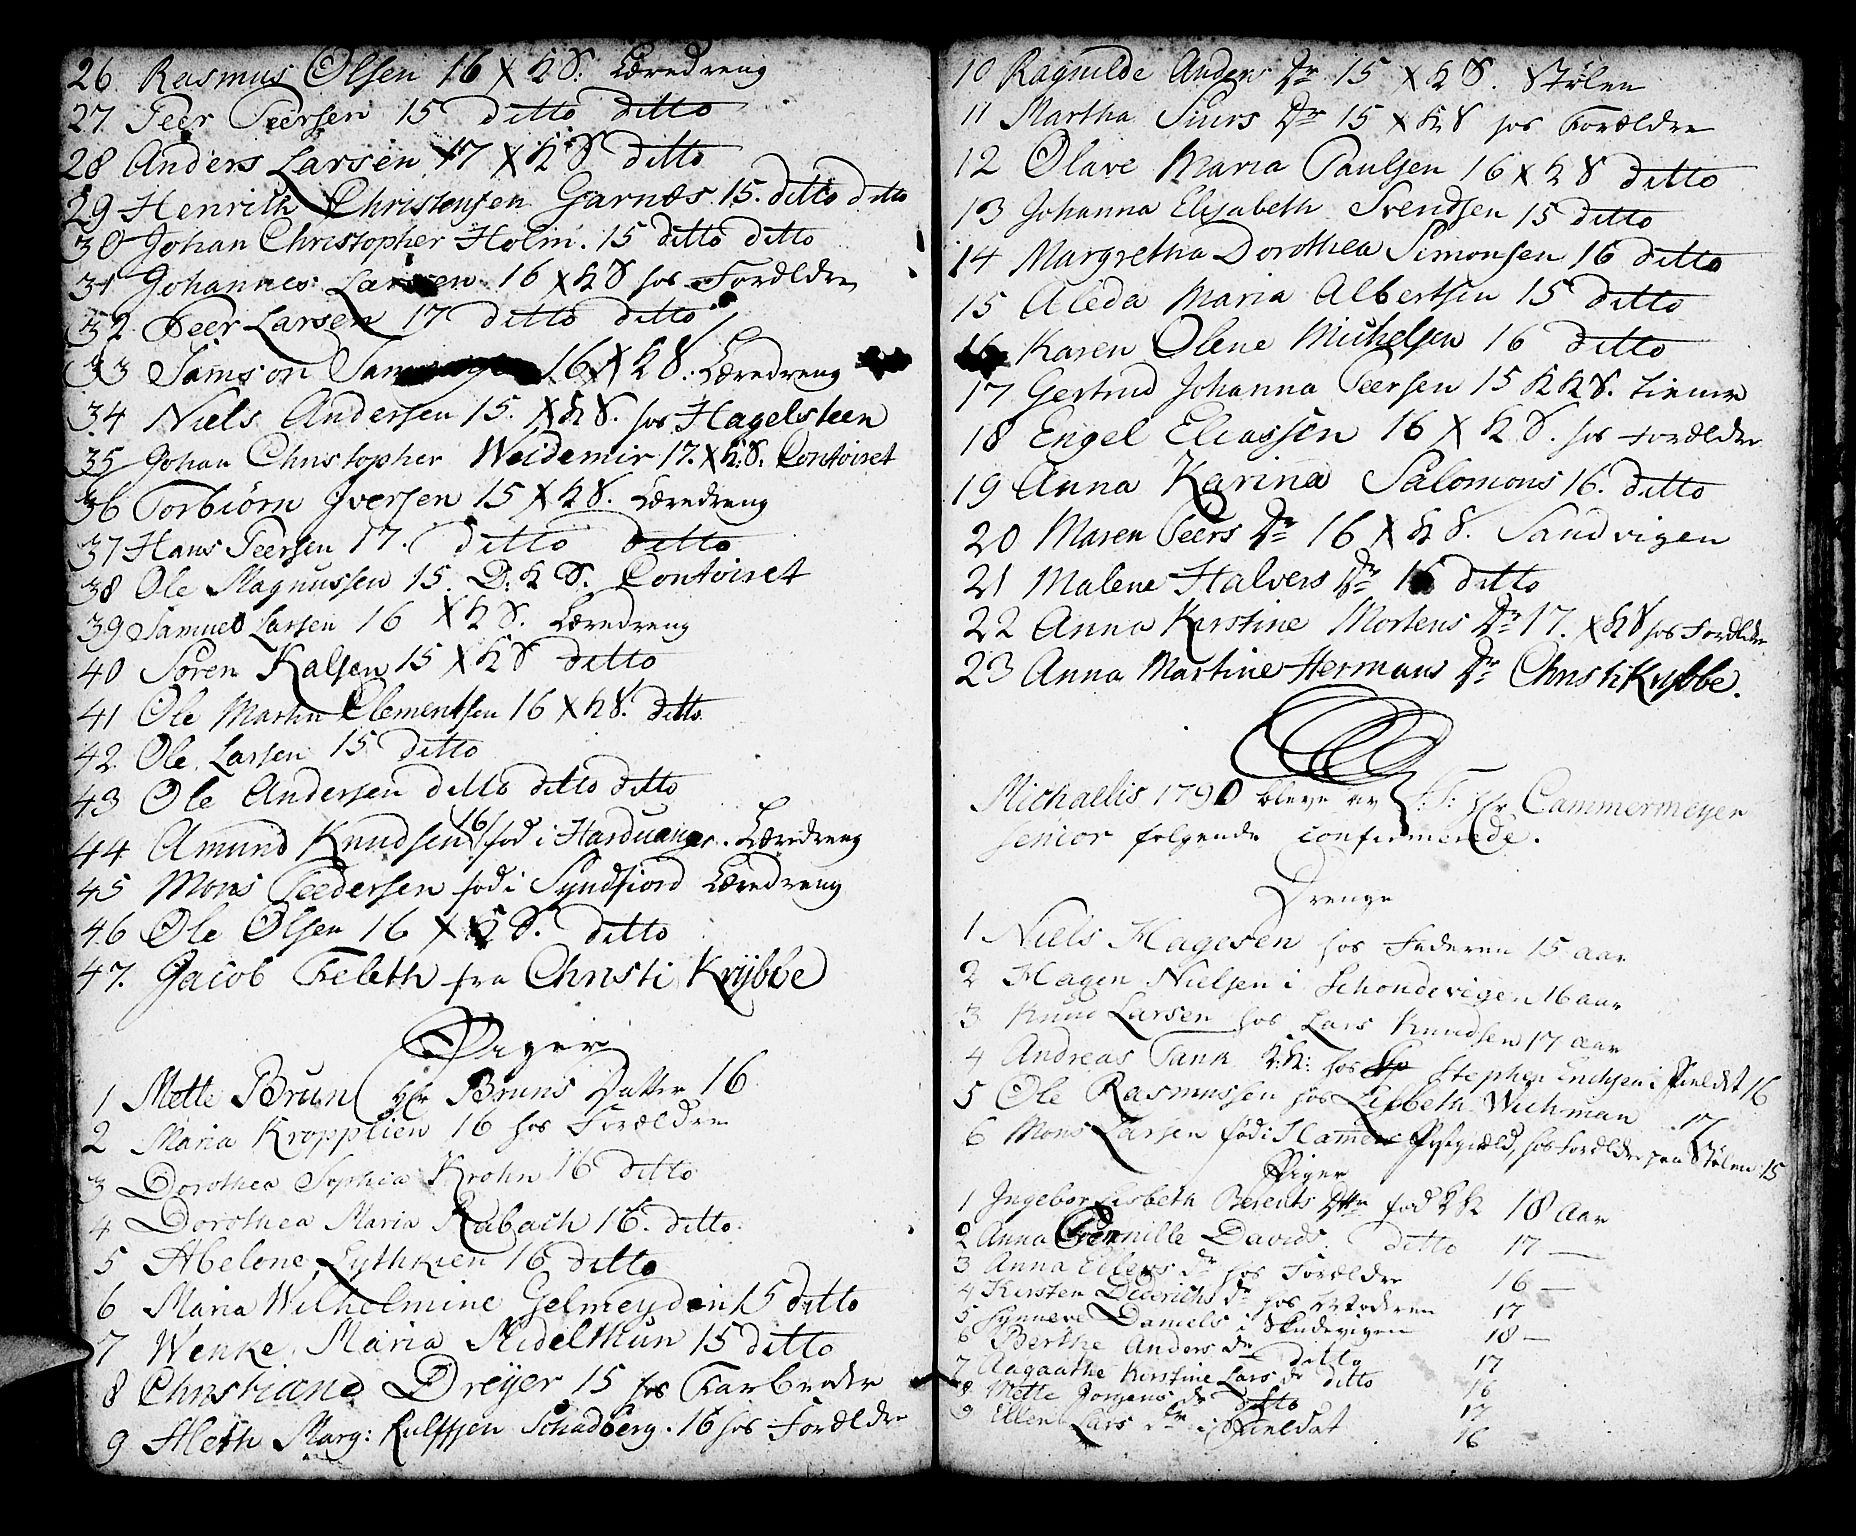 26 Rasmus Olsen 16 X K S. Læredreng
27 Peer Peersen 15 ditto ditto
28 Anders Larsen 17 X K S ditto
29 Henrich Christensen Garnæs 15. ditto ditto
30 Johan Christopher Holm. 15 ditto ditto
31 Johannes Larsen 16 X K S hos Forældre
32 Peer Larsen 17 ditto ditto
33 Samson 16 X K S. Læredreng
34 Niels Andersen 15. X K S. hos Hagelsteen
35 Johan Christopher Weidemir 17. X K: S. Contoiret
36 Torbiörn Iversen 15 X K S. Læredreng
37 Hans Peersen 17. ditto ditto
38 Ole Magnussen 15. D: K S. Contoiret
39 Samuel Larsen 16 X K S. Læredreng
40 Sören Kalsen 15 X K S ditto
41 Ole Martin Clementsen 16 X K S. ditto
42. Ole Larsen 15 ditto
43 Ole Andersen ditto ditto ditto
44 Amund Knudsen 16 fød i Harduanger. Læredreng
45 Mons Peedersen fød i Syndfiord Læredreng
46 Ole Olsen 16 X K S. ditto
47. Jacob Feleth fra Christi Krybbe
Piger
1 Mette Brun Hr Bruns Datter 16
2 Maria Kropplien 16 hos Forældre
3 Dorothea Sophia Krohn 16 ditto
4 Dorothea Maria Rabach 16. ditto.
5 Abelone Lythkien 16 ditto
6 Maria Wilhelmine Gelmeyden 15 ditto
7 Wenke Maria Midelthun 15 ditto
8 Christiane Dreyer 15 hos Farbroder
9 Aleth Marg: Schadberg. 16 hos Forældre
10 Ragnilde Anders Dr 15 X K S. Stølen
11 Martha Siurs Dr 15 X K S hos Forældre
12 Olave Maria Paulsen 16 X K S ditto
13 Johanna Elisabeth Svendsen 15 ditto
14 Margretha Dorothea Simonsen 16 ditto
15 Aleda Maria Albertsen 15 ditto
16 Karen Olene Michelsen 16 ditto
17 Gertrud Johanna Peersen 15 K K S. tiener
18 Engel Eliassen 16 X K S. hos Forældre
19 Anna Karina Salomons 16. ditto
20 Maren Peers Dr 16 X K S. Sandvigen
21 Malene Halvers Dr 16 ditto
22 Anna Kirstine Mortens Dr 17. X K S hos Forældre
23 Anna Martine Hermans Dr Christi Krybbe.
Michaelis 1790 bleve av S: T: Hr Cammermeyer
senior følgende confirmerede.
Drenge
1 Niels Hagesen hos Faderen 15 aar
2 Hagen Nielsen i Schondevigen 16 aar
3 Knud Larsen hos Lars Knudsen 17 aar
4 Andreas Tank K: K: hos Stephen Erichsen i Fieldet 16
5 Ole Rasmussen hos Lisbeth Wichman 17
6 Mons Larsen fød i Hammers Præstegield, hos Forældre paa Stølen 15
Piger
1 Ingebor Lisbeth Berents Dttr fød K K 18 Aar
2 Anna Pernille Davids ditto 17 —
3 Anna Ellers Dr hos Forældre 16 —
4 Kirsten Diderichs dr hos 17
5 Synneve Daniels i Skudevigen 18 —
6 Berthe Anders Dr ditto 17
7 Aagaathe Kirstine Lars dr ditto 16
8 Mette Jorgens dr ditto 17
9 Ellen Lars dr i Fieldet 16